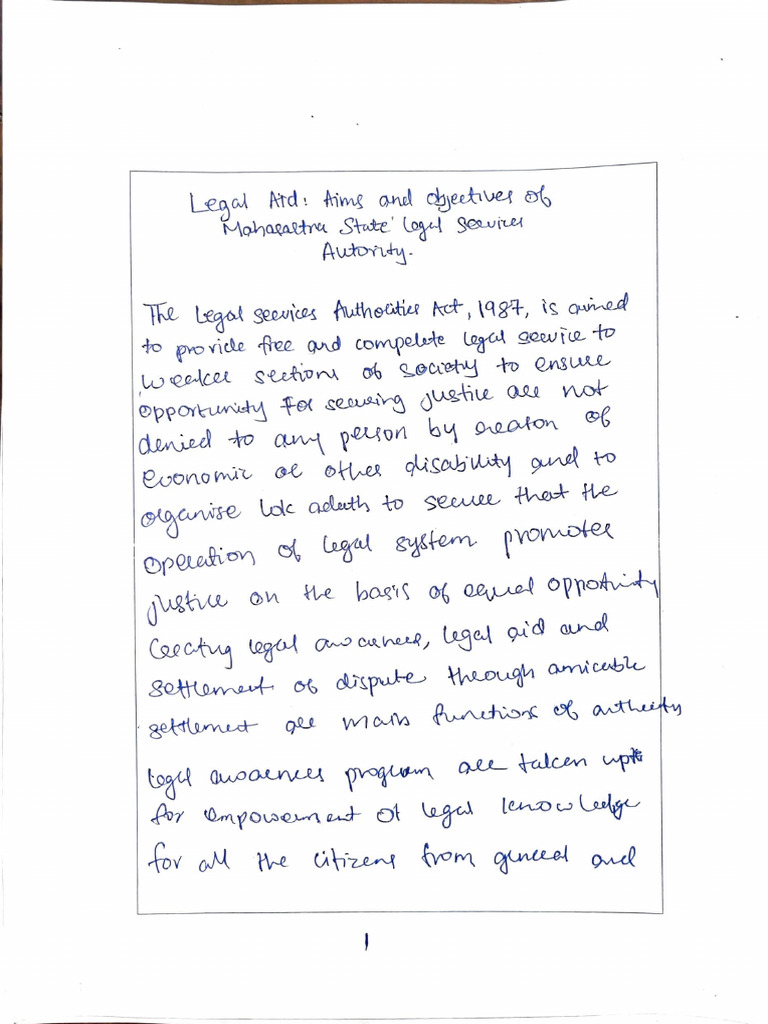 Legal Aid: Aims and objectives of
Maharastra State Legal Services
Autority.
The Legal Services Authorities Act, 1987, is aimed
to provide free and compelete legal service to
weaker sections of society to ensure
opportunity for securing justice are not
denied to any person by reason of
economic or other disability and to
organise lok adalth to secure that the
operation of legal system promotes
justice on the basis of equal opportinity
Creating legal awareness, legal aid and
settlement of dispute through amicable
settlement are main functions of authority
legal awareness program are taken up
for empowerment of legal knowledge
for all the citizens from general and
1